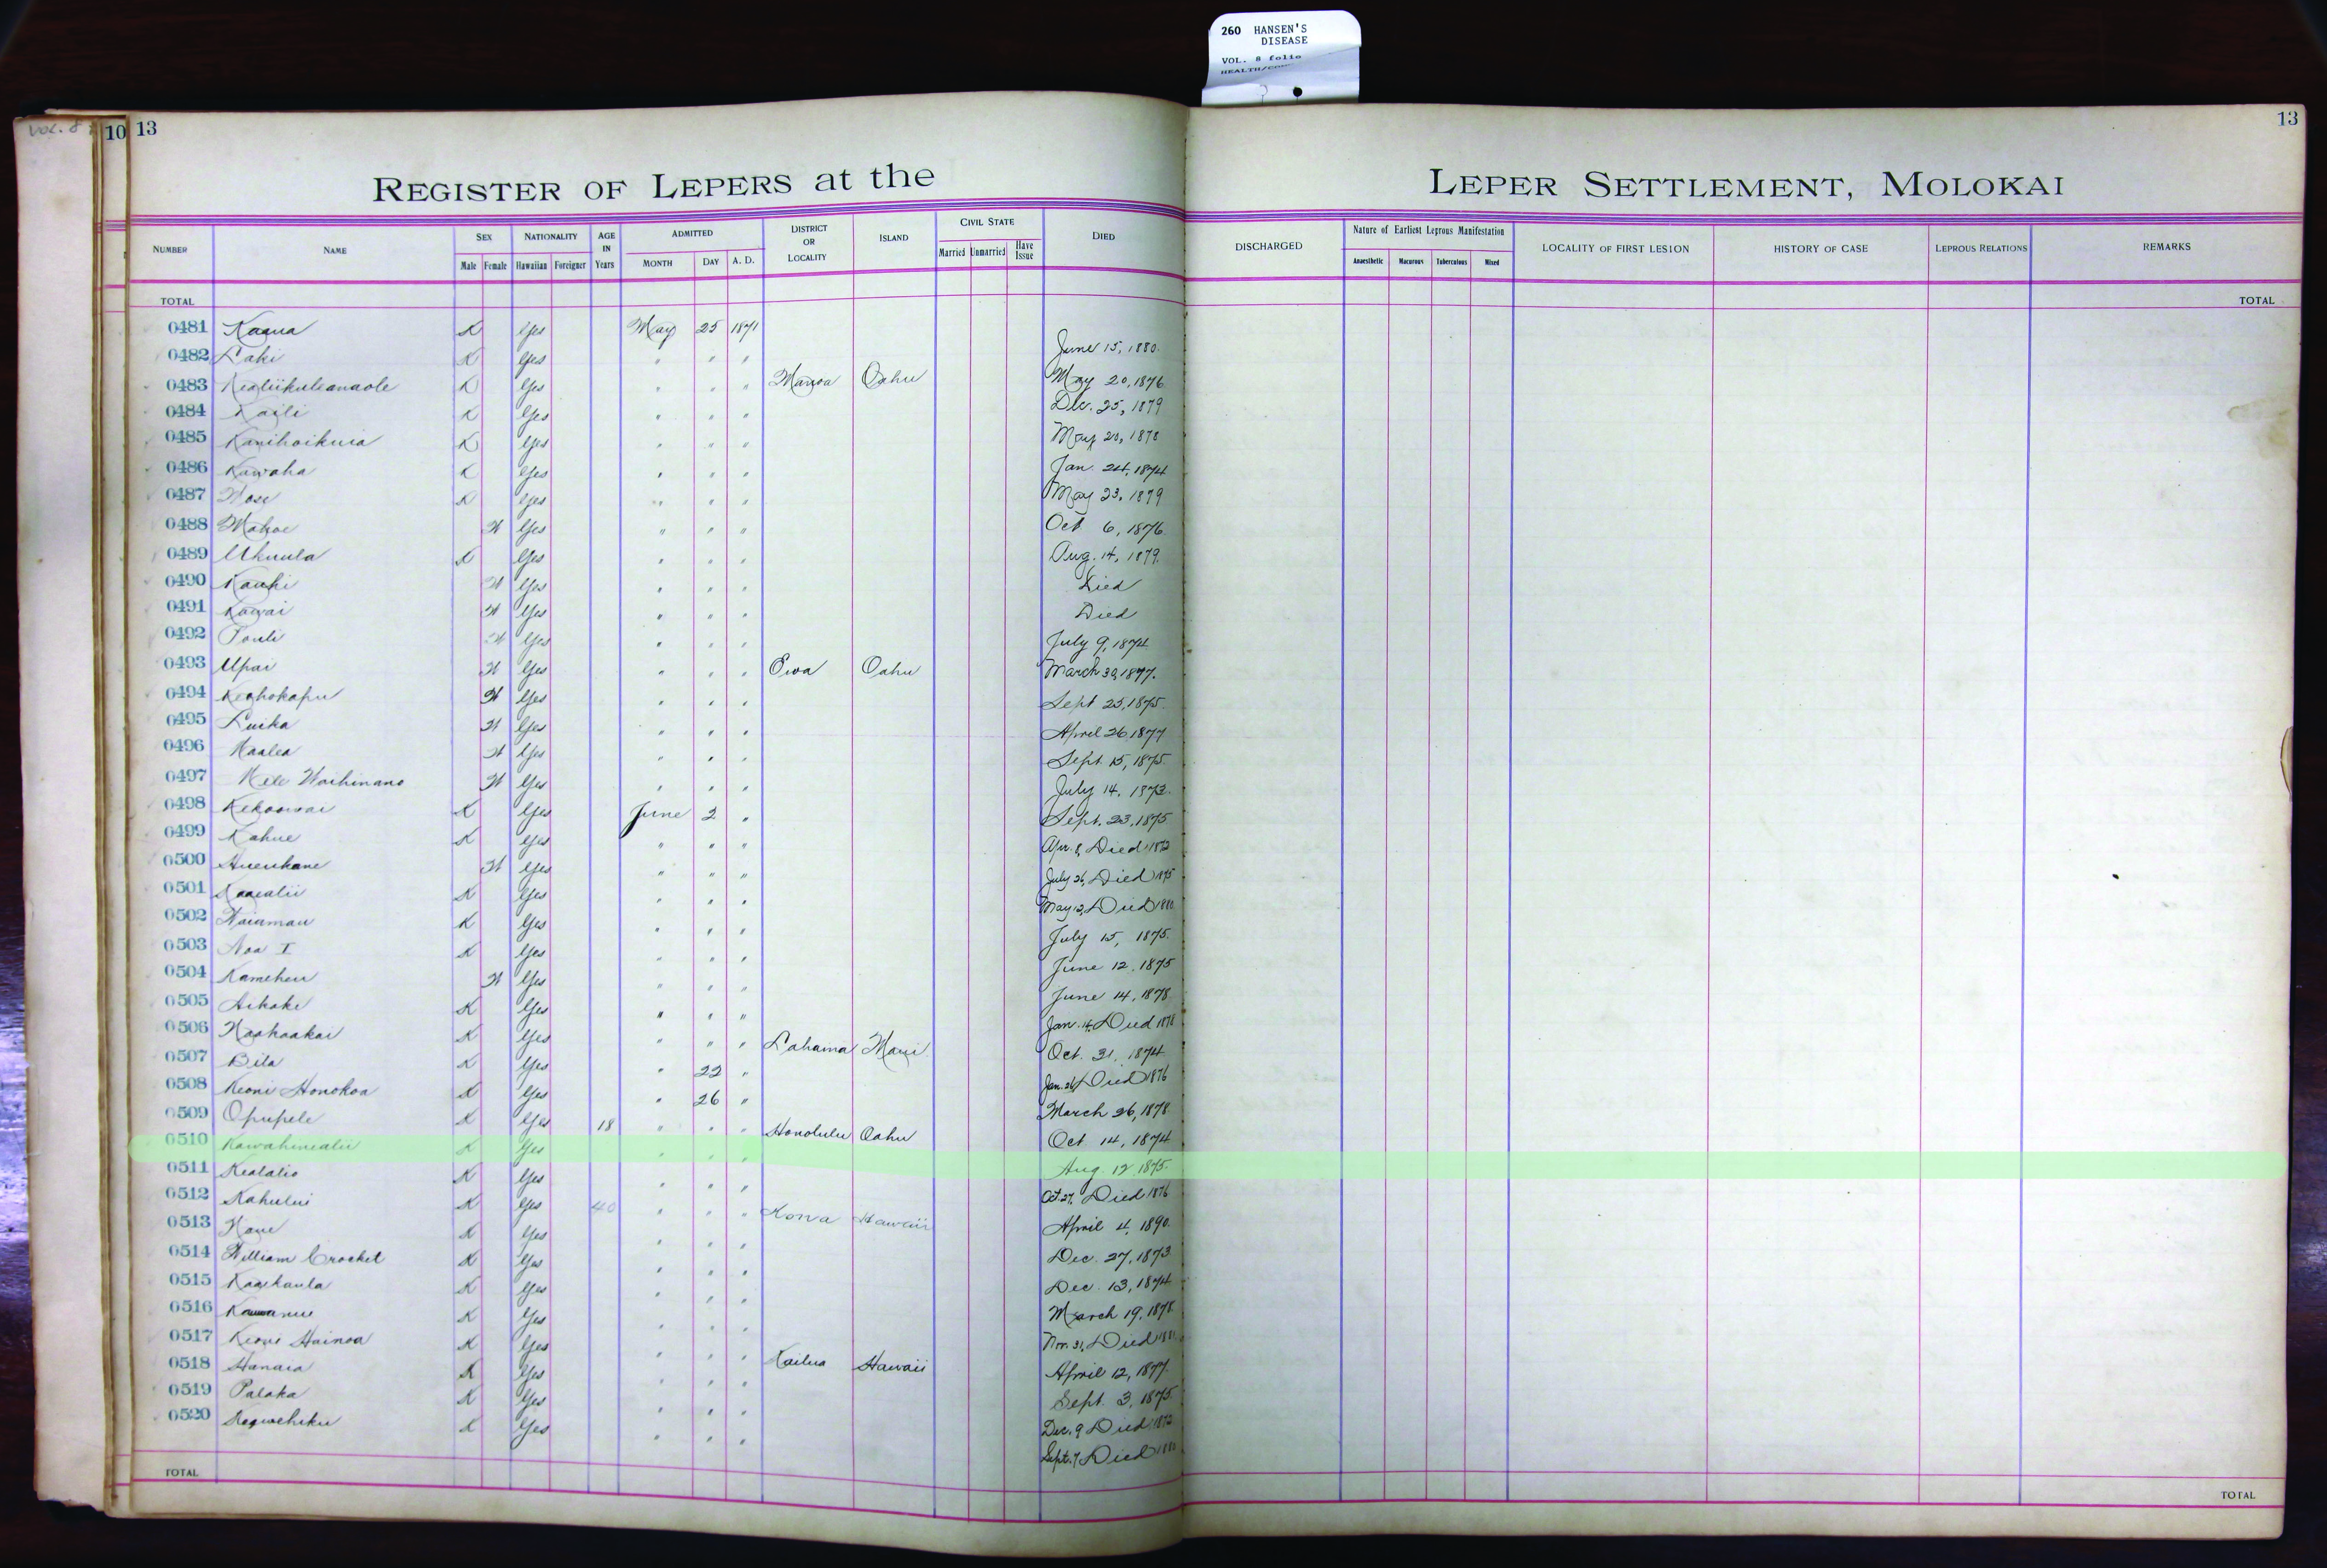 260 HANSEN'S
DISEASE
VOL. 8 folio
VOL. 8
10 13
13
REGISTER OF LEPERS at the LEPER SETTLEMENT, MOLOKAI
NUMBER NAME SEX Male Female NATIONALITY Hawaiian Foreigner AGE IN Years ADMITTED MONTH DAY A. D. DISTRICT OR LOCALITY ISLAND CIVIL STATE Married Unmarried Have Issue DIED DISCHARGED Nature of Earliest Leprous Manifestation Anaesthetic Macurous Tuberculous Mixed LOCALITY OF FIRST LESION HISTORY OF CASE LEPROUS RELATIONS REMARKS
TOTAL TOTAL
0481 Kaaua K Yes May 25 1871 June 15, 1880
0482 Laki K Yes " " " May 20, 1876
0483 Kealiikuleanaole K Yes " " " Manoa Oahu Dec. 25, 1879
0484 Kaili K Yes " " " May 20, 1878
0485 Kanihoikuia K Yes " " " Jan. 24, 1874
0486 Kawaha K Yes " " " May 23, 1879
0487 K Yes " " " Oct 6, 1876
0488 Mahoe W Yes " " " Aug. 14, 1879
0489 Ukuula K Yes " " " Died
0490 Kauhi W Yes " " " Died
0491 Kawai W Yes " " " July 9, 1874
0492 Pouli W Yes " " " March 30, 1877.
0493 Upai W Yes " " " Ewa Oahu Sept 25, 1875.
0494 Keahokapu W Yes " " " April 26 1877
0495 Luika W Yes " " " Sept. 15, 1875.
0496 Maalea W Yes " " " July 14, 1873.
0497 Mele Waihinano W Yes " " " Sept. 23, 1875
0498 Kekoowai K Yes June 2 " Apr. 8, Died 1872
0499 Kahue K Yes " " " July 26, Died 1875
0500 Hueukane W Yes " " " May 12, Died 1880
0501 Kaaealii K Yes " " " July 15, 1875.
0502 Waiamau K Yes " " " June 12, 1875
0503 Noa I K Yes " " " June 14, 1878
0504 Kameheu W Yes " " " Jan. 14, Died 1878
0505 Aikake K Yes " " " Oct. 31, 1874
0506 Naahaakai K Yes " " " Lahaina Maui Jan. 26, Died 1876
0507 Bila K Yes " 22 " March 26, 1878
0508 Keoni Honokoa K Yes " 26 " Oct 14, 1874
0509 Opupele K Yes 18 " " " Honolulu Oahu
0510 Kawahinealii K Yes " " " Aug. 12 1875.
0511 Kealalio K Yes " " " Oct. 27, Died 1876
0512 Kahului K Yes 40 " " " Kona Hawaii April 4, 1890.
0513 K Yes " " " Dec. 27, 1873
0514 William Crocket K Yes " " " Dec. 13, 1874
0515 Kaaikaula K Yes " " " March 19, 1878
0516 K Yes " " " Nov. 31, Died
0517 Keoni Hainoa K Yes " " " Kailua Hawaii April 12, 1877.
0518 Hanaia K Yes " " " Sept. 3, 1875.
0519 Palaka K Yes " " " Dec. 9 Died 1872
0520 K Yes " " " Sept. 7, Died
TOTAL TOTAL